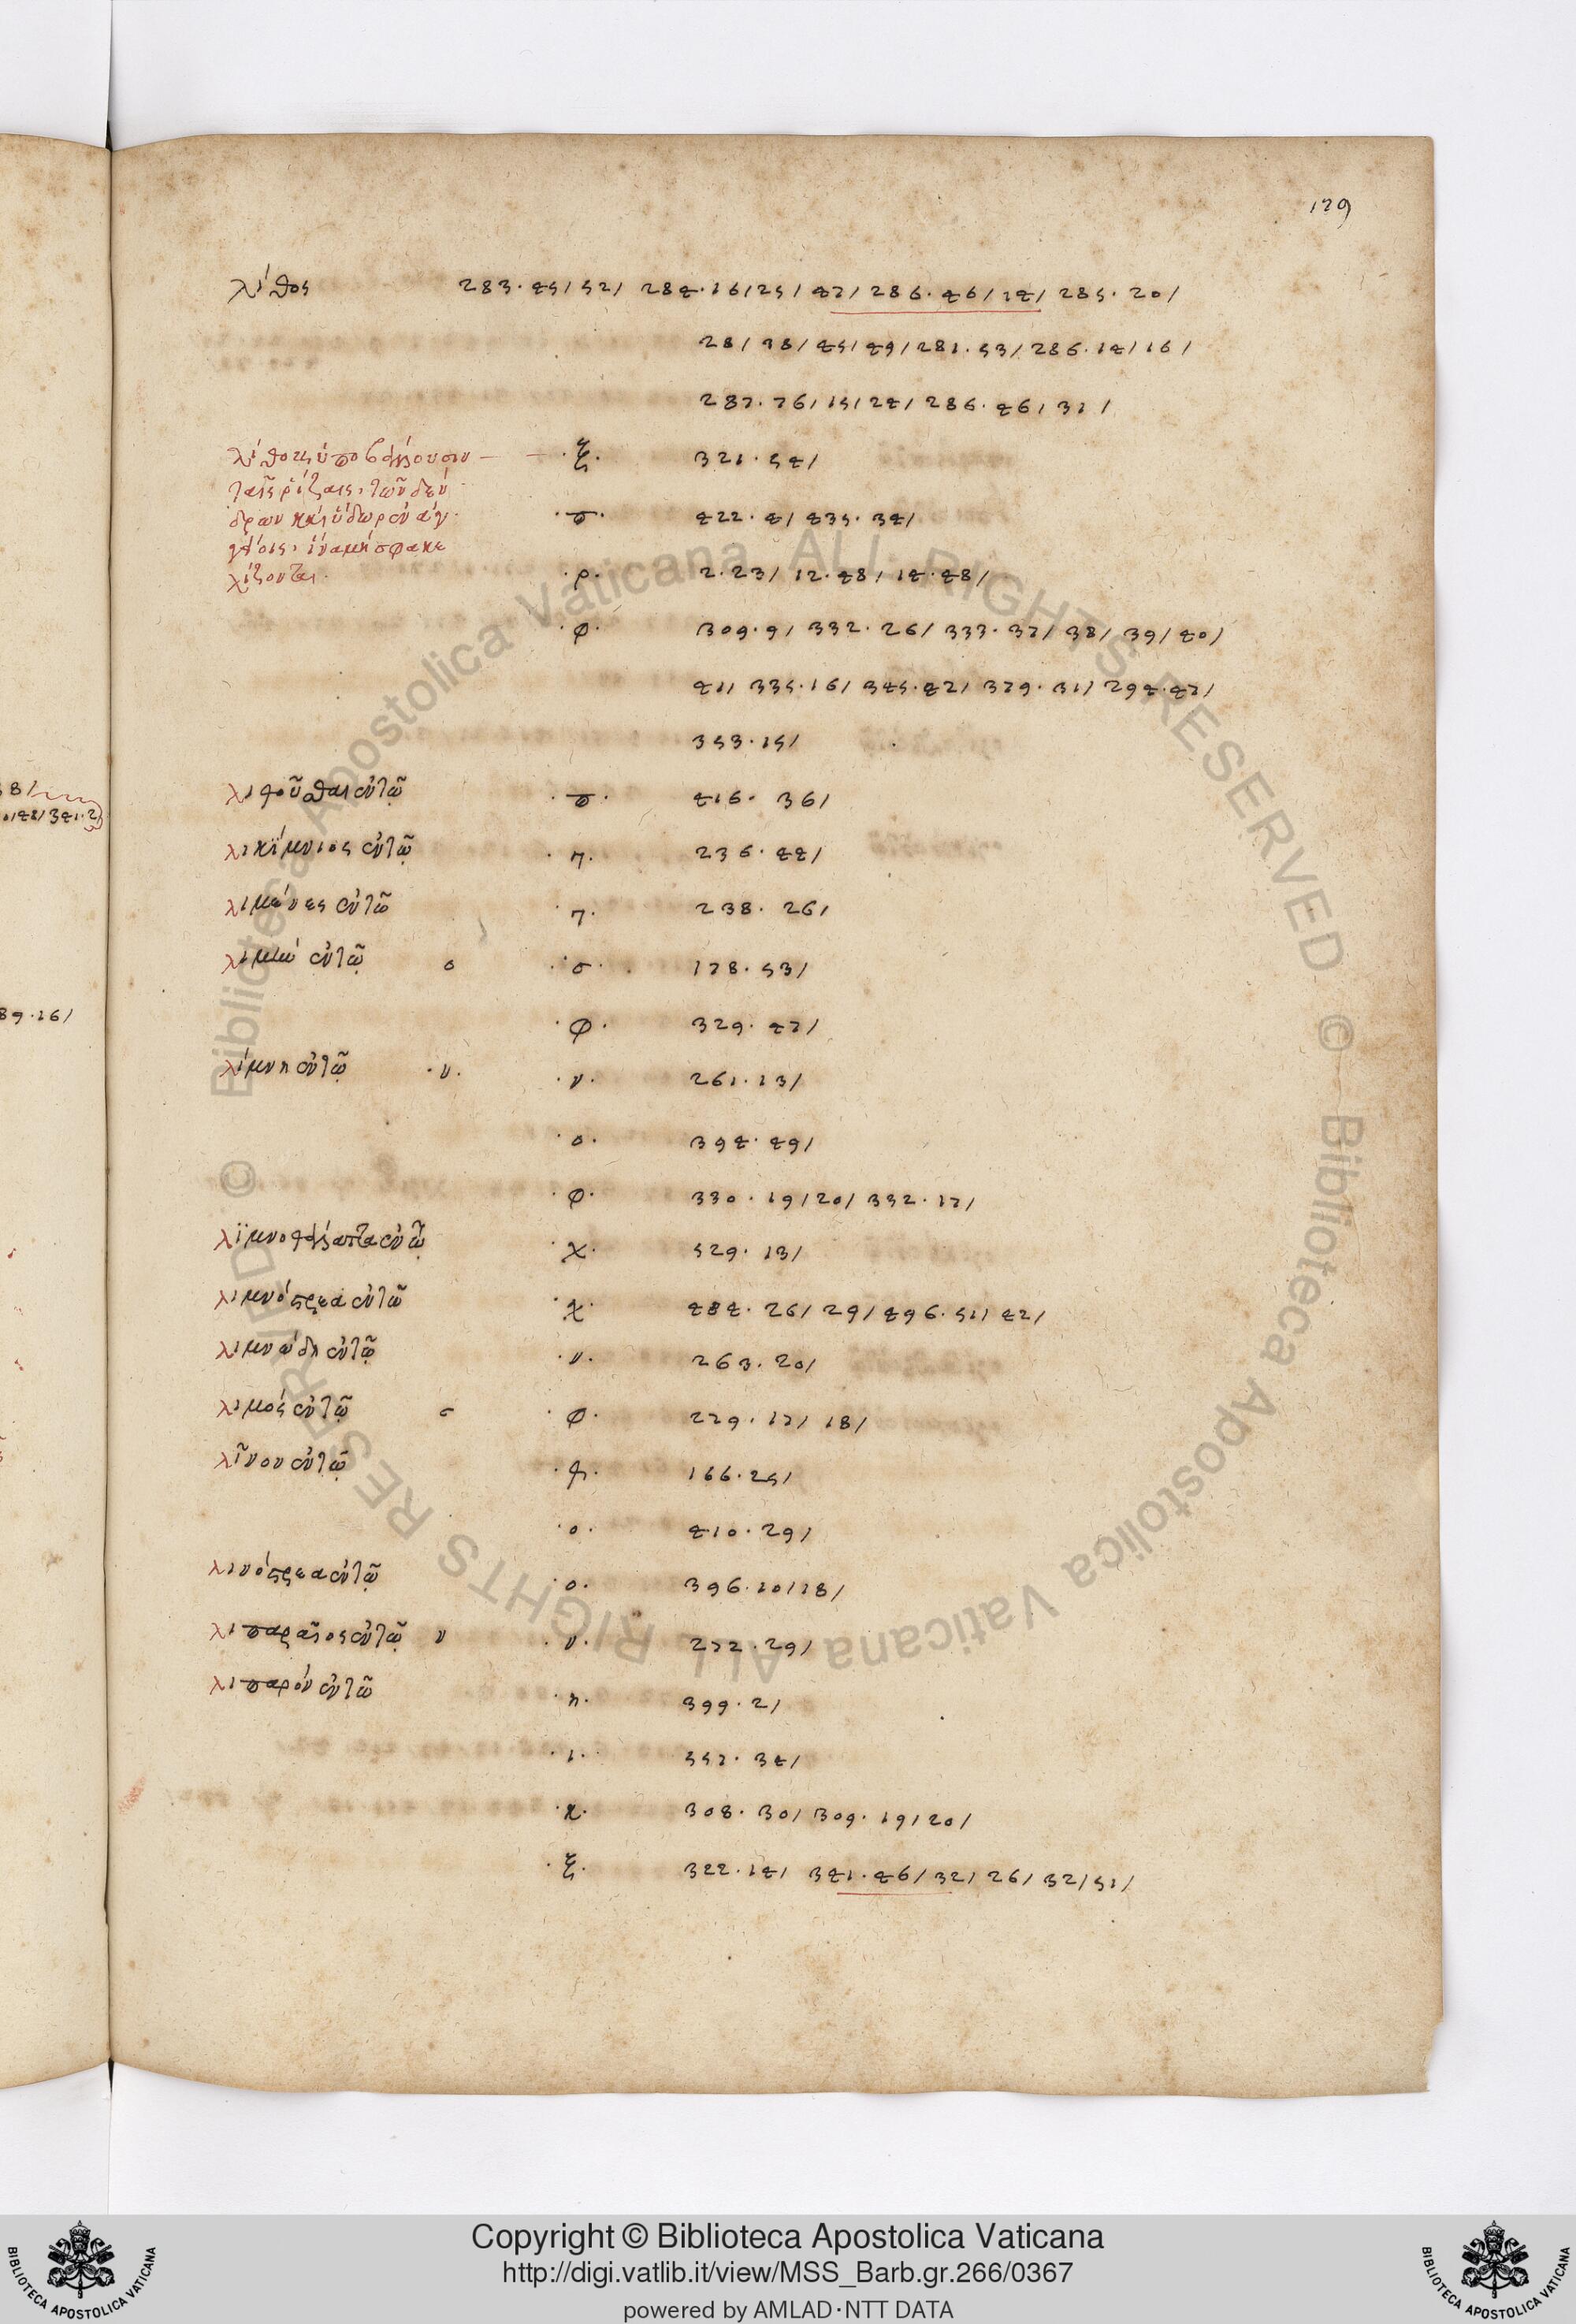 179
λίθος 283. 45/ 52/ 284. 16/ 25/ 47/ 286. 46/ 14/ 285. 20/
28/ 38/ 45/ 49/ 281. 53/ 286. 14/ 16/
287. 76/ 15/ 24/ 286. 46/ 31/
λίθους ὑποβάλλουσιν
·ξ· 321. 54/
ταῖς ῥίζαις, τῶν δέν
δρων καὶ ὕδωρ ἐν ἀγ
·π· 422. 4/ 435. 34/
ἵνα μὴ σφακε
λίζονται.
·ρ· 2. 23/ 12. 48/ 14. 48/
·φ· 309. 9/ 332. 26/ 333. 37/ 38/ 39/ 40/
41/ 335. 16/ 345. 42/ 379. 31/ 294. 47/
353. 15/
ἐν τῷ ·π· 416. 36/
λικίμνιος ἐν τῷ ·π· 236. 44/
λιμένες ἐν τῷ ·π· 238. 26/
ἐν τῷ σ ·σ· 178. 53/
·φ· 329. 47/
λίμνη ἐν τῷ ·ν· ·ν· 261. 13/
·ο· 394. 49/
·φ· 330. 19/ 20/ 332. 17/
ἐν τῷ ·χ· 529. 13/
λιμνόστρεα ἐν τῷ ·χ· 484. 26/ 29/ 496. 51/ 42/
λιμνώδη ἐν τῷ ·ν· 263. 20/
λιμός ἐν τῷ σ ·φ· 229. 17/ 18/
λῖνον ἐν τῷ 166. 25/
·ο· 410. 29/
λινόστρεα ἐν τῷ ·ο· 396. 10/ 18/
λιπαραῖος ἐν τῷ ν ·ν· 272. 29/
λιπαρόν ἐν τῷ ·η· 399. 2/
·ι· 557. 34/
·κ· 308. 30/ 309. 19/ 20/
·ξ· 322. 14/ 341. 46/ 32/ 26/ 32/ 51/
8/
89. 16/
Copyright © Biblioteca Apostolica Vaticana
http://digi.vatlib.it/view/MSS_Barb.gr.266/0367
powered by AMLAD·NTT DATA
BIBLIOTECA APOSTOLICA VATICANA
BIBLIOTECA APOSTOLICA VATICANA
© Biblioteca Apostolica Vaticana ALL RIGHTS RESERVED © Biblioteca Apostolica Vaticana ALL RIGHTS RESERVED